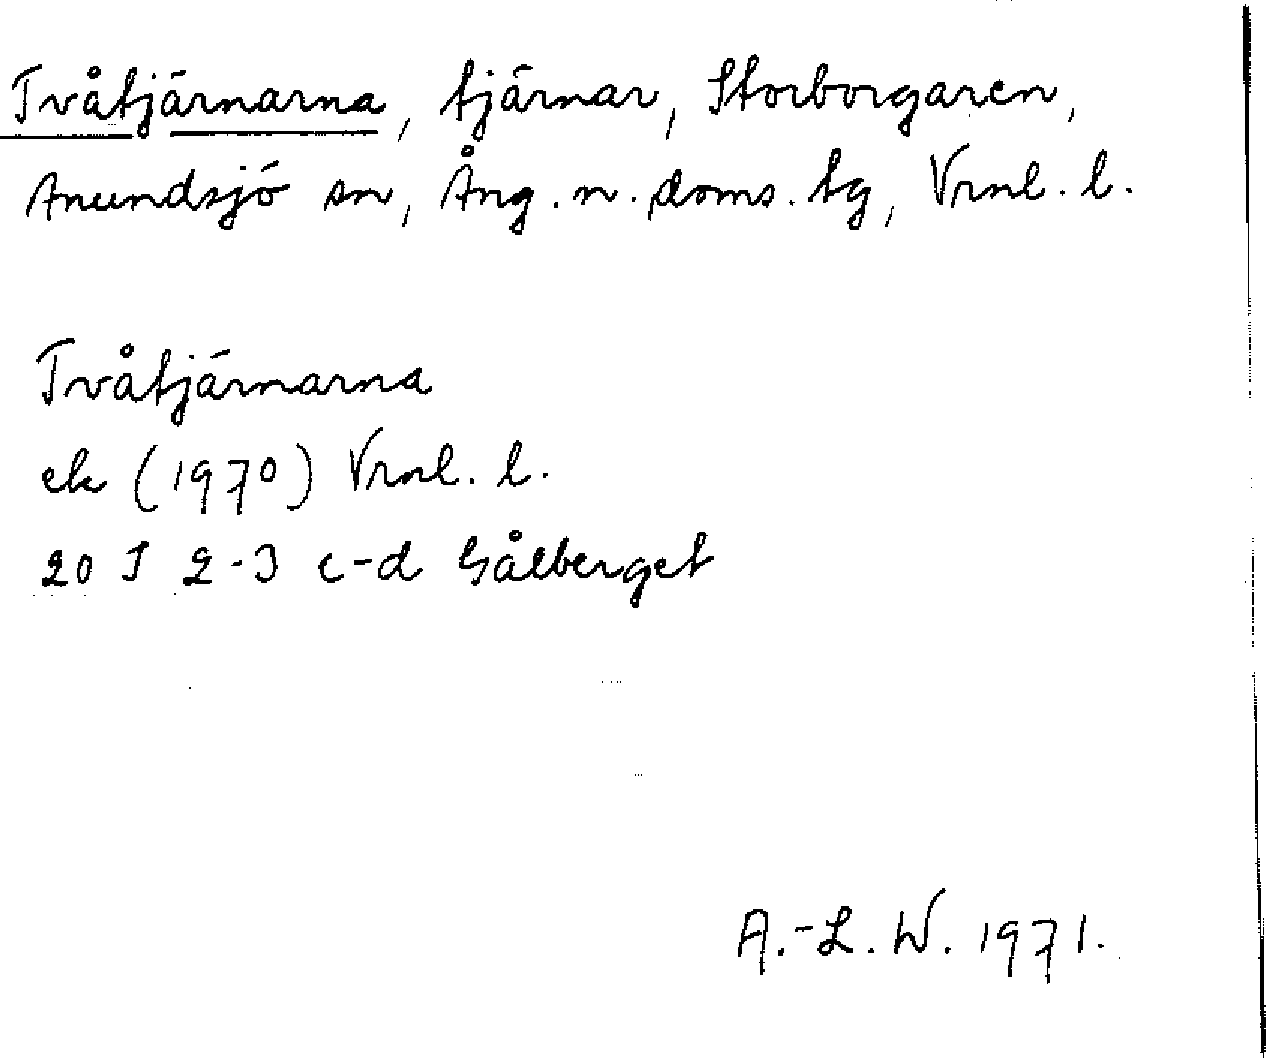 Tvåtjärnarna, tjärnar, Storborgaren,
Anundsjö sn, Ång. n. doms. tg, Vrnl. l.
Tvåtjärnarna
ek (1970) Vrnl. l.
20 I 2-3 c-d Gålberget
A.-L. W. 1971.